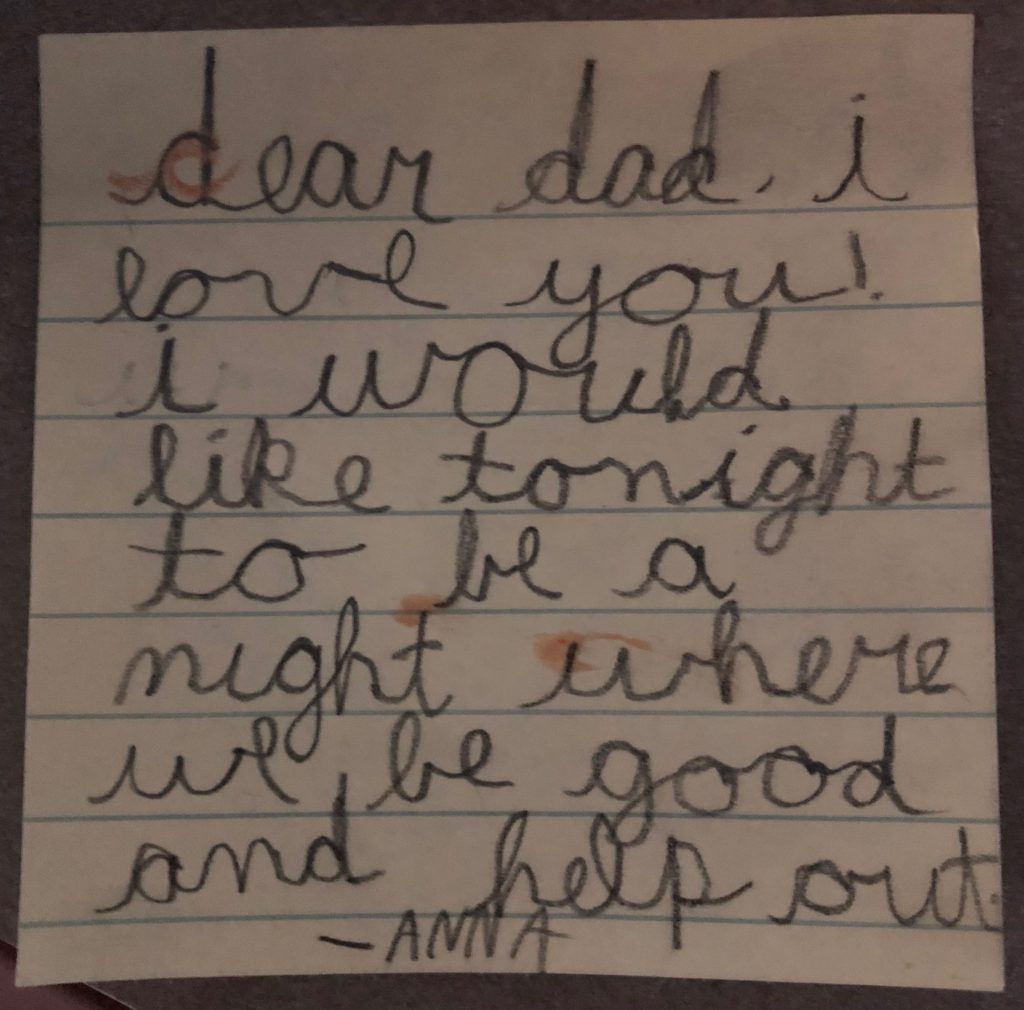 dear dad. i
love you!
i would
like tonight
to be a
night where
we be good
and help out.
- ANNA